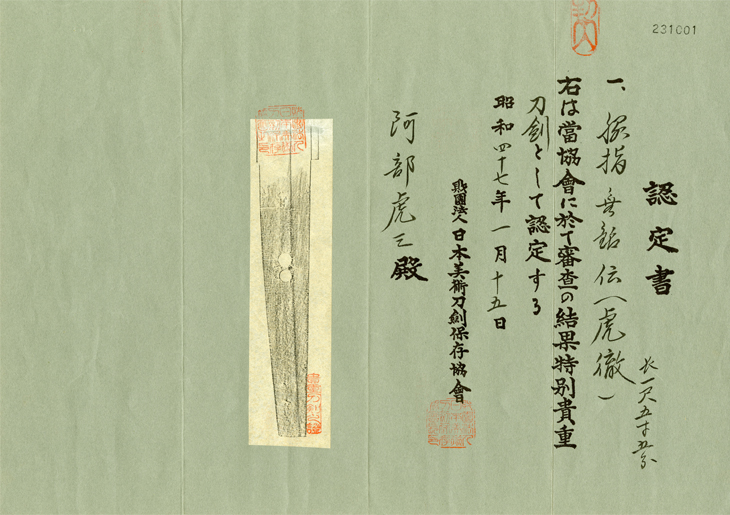 231001
認定書
一、脇指 無銘 伝(虎徹)
長一尺五寸五分
右は當協會に於て審査の結果特別貴重
刀劍として認定する
昭和四十七年一月十五日
財團法人日本美術刀劍保存協會
阿部虎三殿